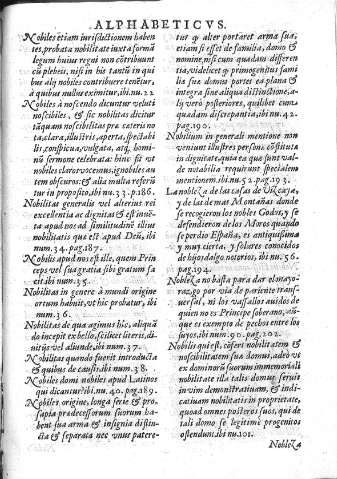 ALPHABETICVS.
Nobiles etiam iurisdictionem haben
tes, probata nobilitate iuxta formã
legum huius regni non cõtribunt
cũ plebeis, nisi in hie tantũ in qui
bus alij nobiles contribuere tenẽtur,
à quibus nullus eximitur, ibi. nu. 22
Nobiles à noscendo dicuntur veluti
noscibiles, & sic nobilitas dicitur
tãquam noscibilitas præ cæteris no
ta, clara, illustris, aperta, spectabi
lis, conspicua, vulgata, atq; homi-
nũ sermone celebrata: hinc sit vt
nobiles clarovocemus, ignobiles au
tem obscuros: & alia multa referũ
tur in proposito, ibi nu. 23. p. 186.
Nobilitas generalis vel alterius rei
excellentia ac dignitas est inuẽ-
ta apud nos ad similitudinẽ illius
nobilitatis quæ est apud Deũ, ibi
num. 34. pag. 187.
Nobilis apud nos est ille, quem Prin
ceps vel sua gratia sibi gratum fa
cit ibi num. 35.
Nobilitas in genere à mundi origine
ortum habuit, vt hic probatur, ibi
num. 36.
Nobilitas de qua agimus hic, aliquã
do incepit ex bello, scilicet literis, di-
uitijs vel aliunde, ibi num. 37.
Nobilitas quando fuerit introducta
& quibus de causis, ibi num. 38.
Nobiles domi nobiles apud Latinos
qui dicantur? ibi nu. 40. pag. 189.
Nobiles origine, longa serie & pro-
sapia prædecessorum suorum ha-
bent sua arma & insignia distin-
cta & separata nec vnus patere-
tur q̃ alter portaret arma sua,
etiam si esset de familia, domo &
nomine, nisi cum quadam differen
tia, videlicet q̃ primogenitus fami
lia sua domus portet ea plana &
integra sine aliqua distinctione, a-
lij verò posteriores, quilibet cum
quadam discrepantia, ibi nu. 42.
pag. 190.
Nobilium in generali mentione non
veniunt illustres personæ cõstitutæ
in dignitate, quia ea quæ sunt val-
dè notabilia requirunt specialem
mentionem ibi. nu. 52. pag. 193.
La nobleza de las casas de Vizcaya,
y de las demas Montañas donde
se recogieron los nobles Godos, y se
defendieron de los Moros quando
se perdio España, es antiquissima
y muy cierta, y solares conocidos
de hijosdalgo notorios, ibi nu. 56.
pag. 194.
Nobleza no basta para dar el mayo-
razgo por via de pariente trans-
uersal, ni los vassallos auidos de
quien no es Principe soberano, aũ-
que es exempto de pechos entre los
suyos, ibi num. 90. pag. 202.
Nobilis qui est, cõsert nobilitatem &
noscibilitatem sua domus, adeò vt
ex dominorũ suorum immemoriali
nobilitate illa talis domus seruit
in vim demonstratiuam, & indi-
catiuam nobilitatis in proprietate,
quoad omnes posteros suos, qui de
tali domo se legitimè progenitos
ostendunt, ibi nu. 101.
Nobleza